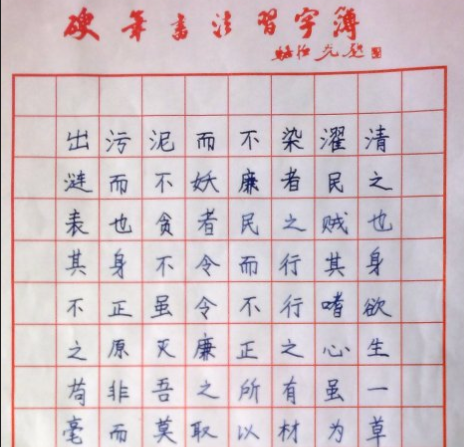 硬筆書法習字簿
出污泥而不染濯清
涟而不妖廉者民之
表也贪者民之贼也
其身不令而行其身
不正虽令不行嗜欲
之原灭廉正之心生
苟非吾之所有虽一
毫而莫取以材为草